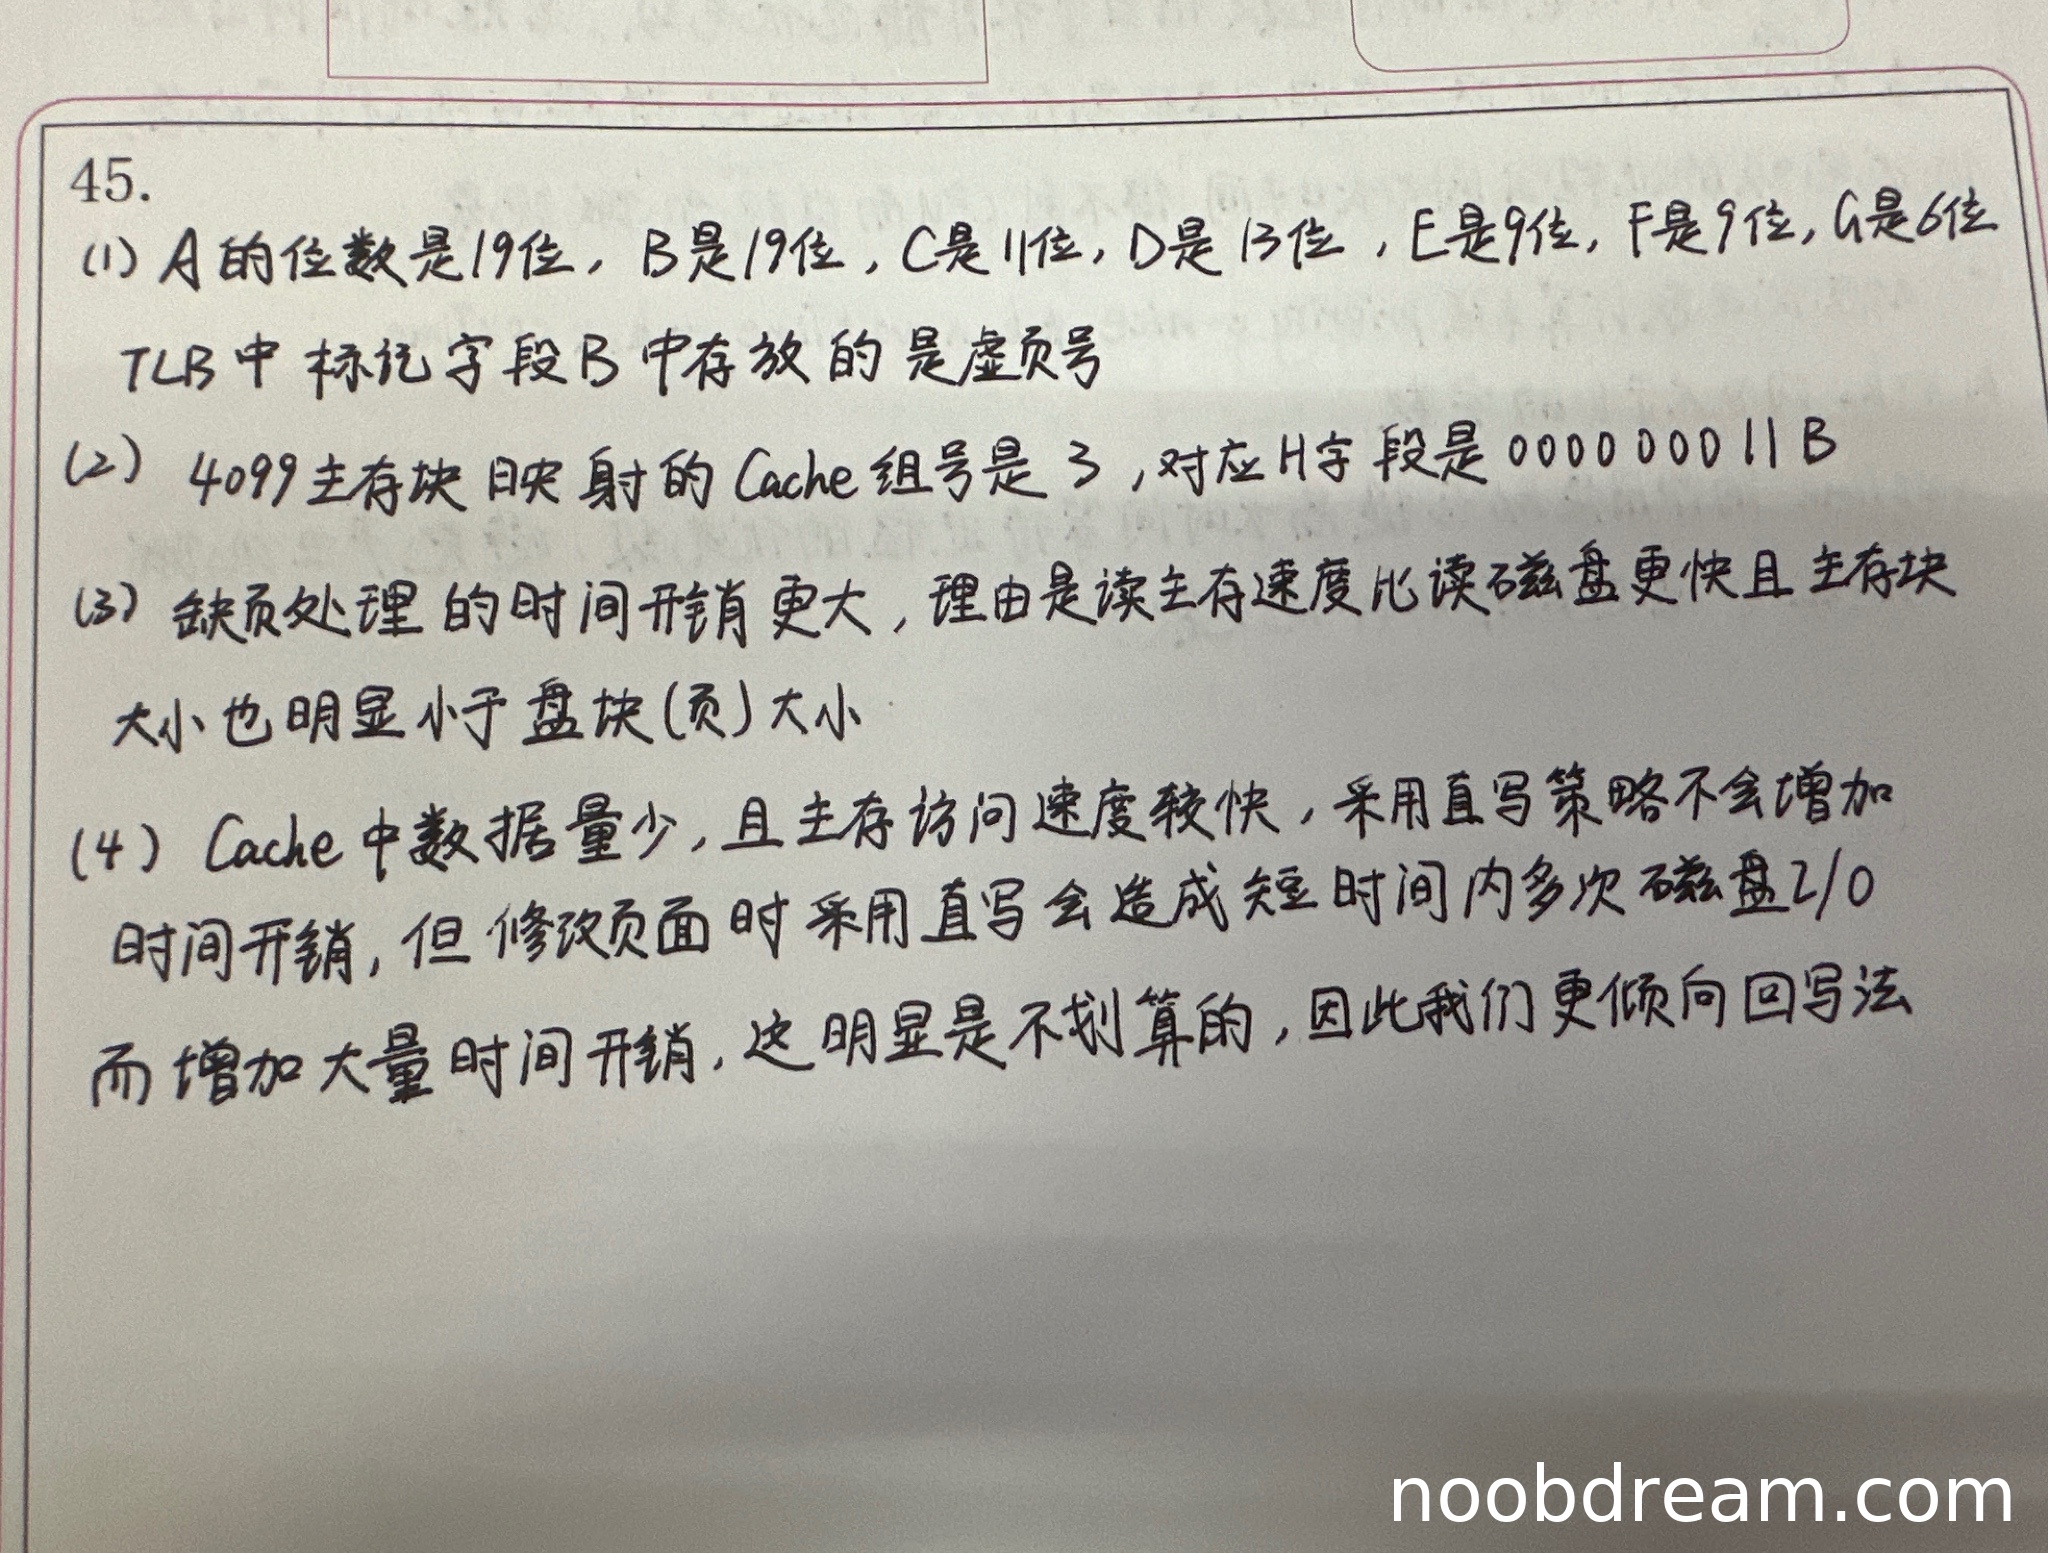 45.
(1) A的位数是19位, B是19位, C是11位, D是13位, E是9位, F是9位, G是6位
TLB中标记字段B中存放的是虚页号
(2) 4099主存块映射的Cache组号是3,对应H字段是000000011B
(3) 缺页处理的时间开销更大,理由是读主存速度比读磁盘更快且主存块
大小也明显小于盘块(页)大小
(4) Cache中数据量少,且主存访问速度较快,采用直写策略不会增加
时间开销,但修改页面时采用直写会造成短时间内多次磁盘I/O
而增加大量时间开销,这明显是不划算的,因此我们更倾向回写法
noobdream.com